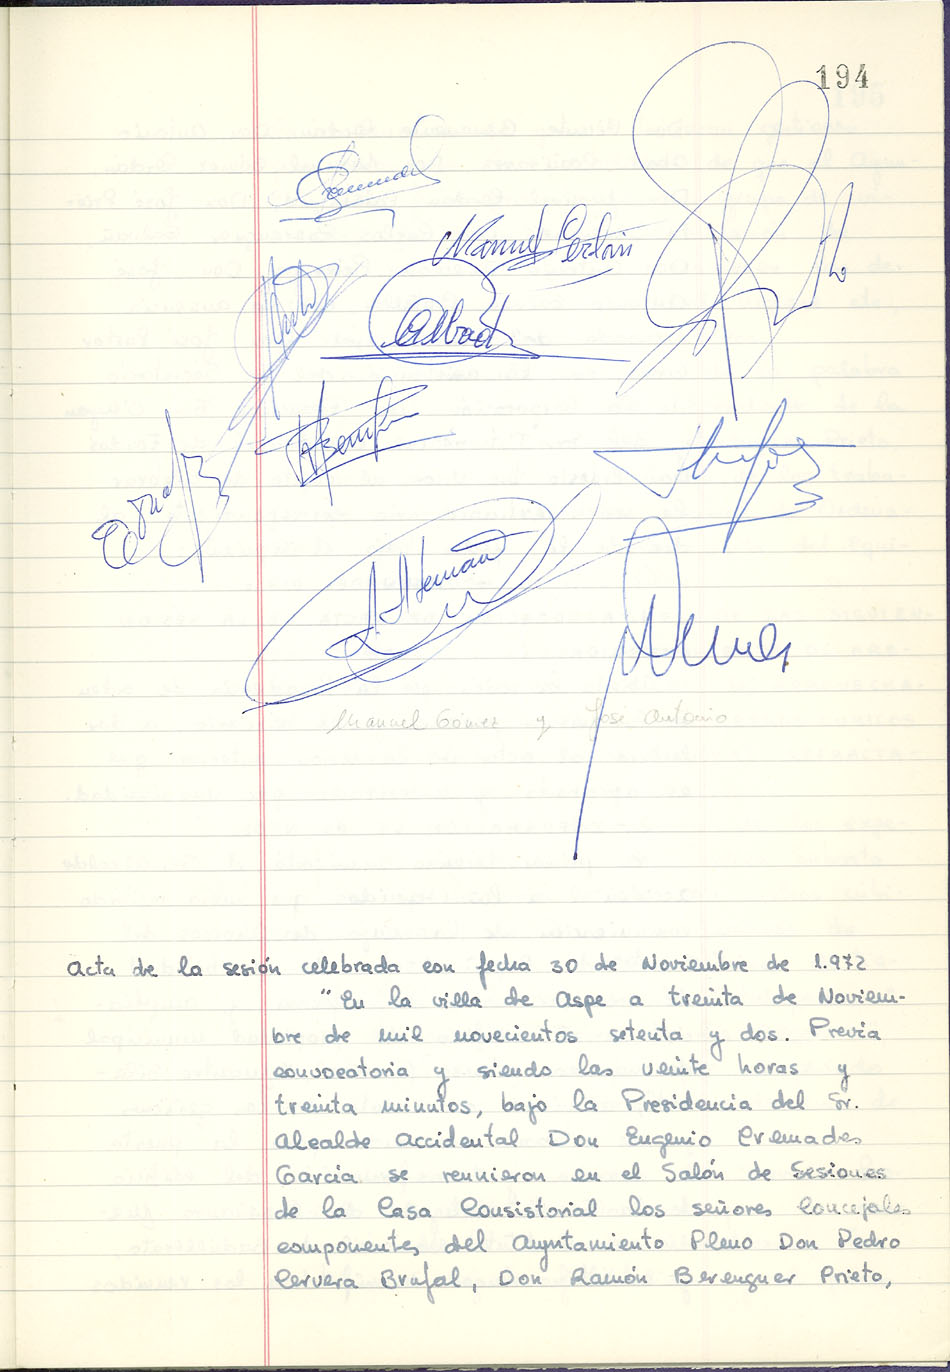 194
Manuel Cerdán
Abad
A. Alemañ
Manuel Gómez y José Antonio
Acta de la sesión celebrada con fecha 30 de Noviembre de 1.972
"En la villa de Aspe a treinta de Noviem-
bre de mil novecientos setenta y dos. Previa
convocatoria y siendo las veinte horas y
treinta minutos, bajo la Presidencia del Sr.
Alcalde Accidental Don Eugenio Cremades
García se reunieron en el Salón de Sesiones
de la Casa Consistorial los señores Concejales
componentes del Ayuntamiento Pleno Don Pedro
Cervera Brufal, Don Ramón Berenguer Prieto,